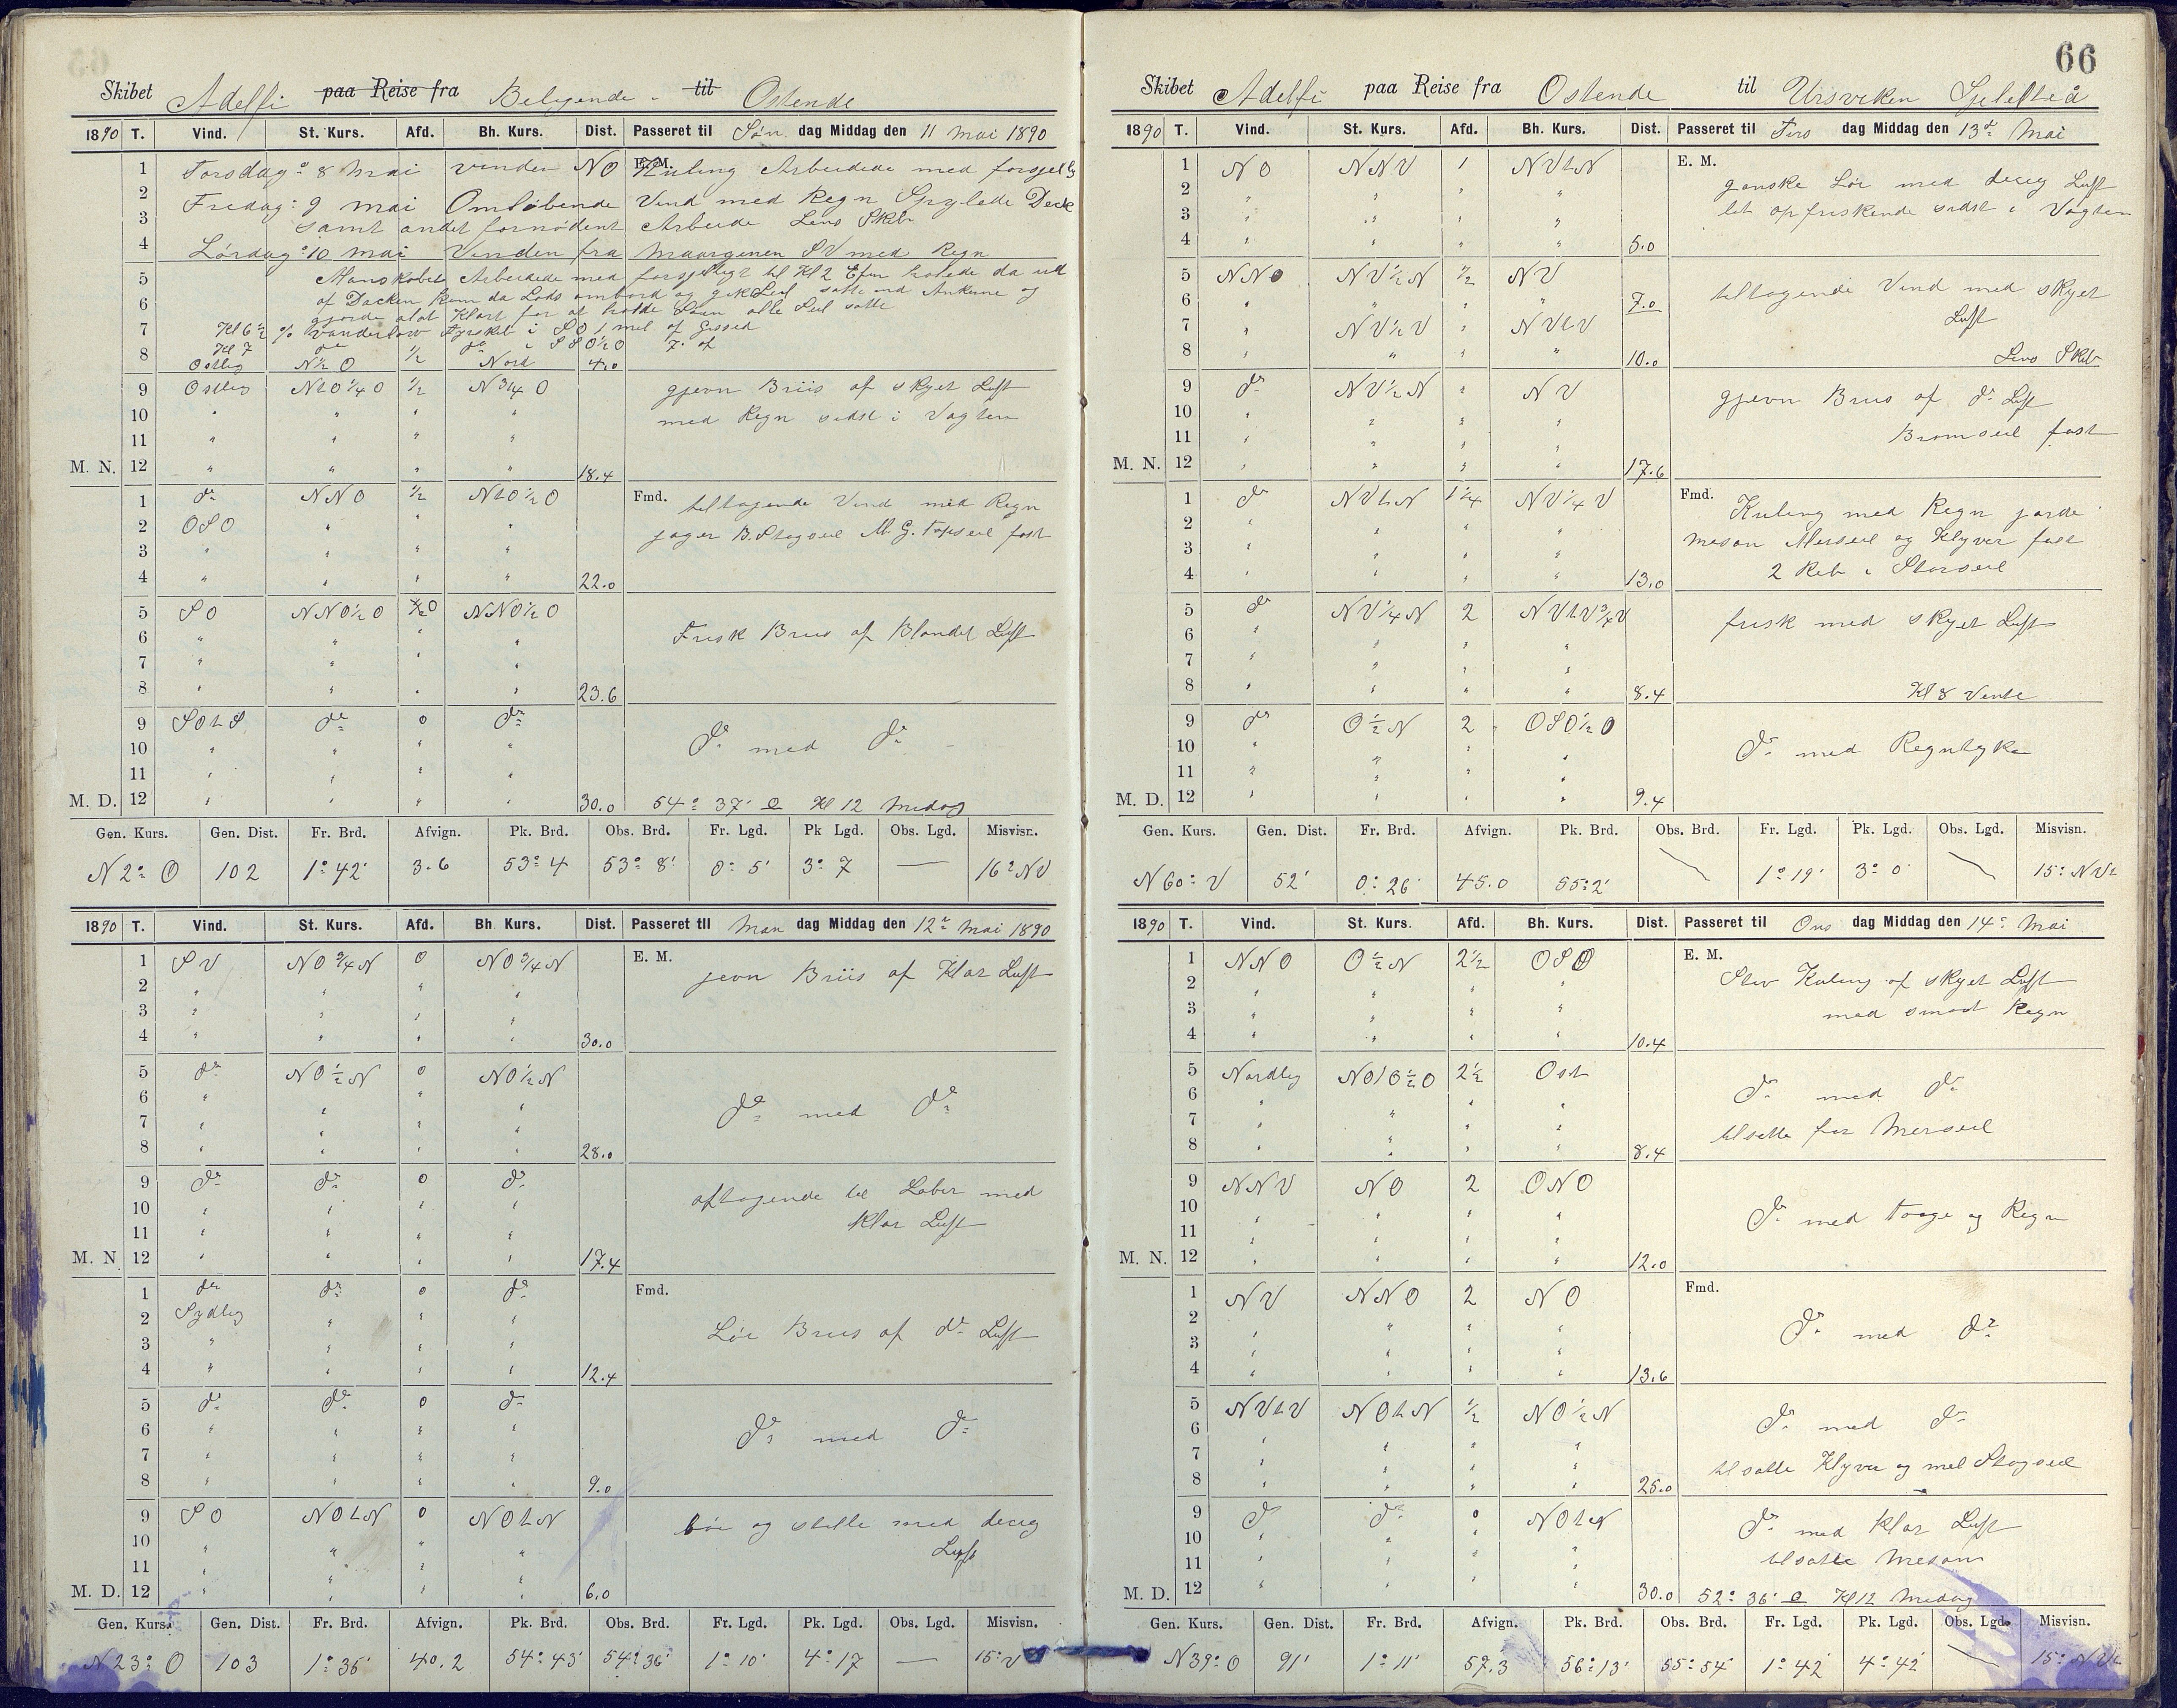 66
Skibet Adelfi paa Reise fra Belgende - til Ostende
1890 T. Vind. St. Kurs. Afd. Bh. Kurs. Dist. Passeret til Søn dag Middag den 11 Mai 1890
E. M.
1 Torsdag 8 Mai vinden NO Kuling Arbeidede med forsjellig
2 Fredag 9 Mai Omløbende Vind med Regn Spylede Deck
3 samt andet fornødent Arbeide Lens Skib
4 Lørdag 10 Mai Vinden fra Maargenen SV med Regn
5 Manskabet Arbeidede med forsjelligt til Kl 2 Efm halede da ud
6 af Docken kom da Lods ombord og gik Seil satte ind Ankerne og
gjorde alot Klart for at holde Søen alle Seil satte
7 Kl 6½ Fyrskib i SO 1 mil af Gissed
8 Kl 7 do do i SSO½O 7' af
Ostlig N½O ½ Nord 4.0
9 Ostlig NtO¼O ½ N¾O gjevn Briis af skyet Luft
10 " " " " med Regn sidst i Vagten
11 " " " "
M. N. 12 " " " " 18.4
1 do NNO ½ NtO½O Fmd. tiltagende Vind med Regn
2 OSO " " " jager B. Stagseil M. G. Topseil fast
3 " " " "
4 " " " " 22.0
5 SO NNO½O 0 NNO½O
6 " " " " Frisk Briis af Blandet Luft
7 " " " "
8 " " " " 23.6
9 SOtS do 0 do
10 " " " " do med do
11 " " " "
M. D. 12 " " " " 30.0 54° 37' Kl 12 Midag
Gen. Kurs. Gen. Dist. Fr. Brd. Afvign. Pk. Brd. Obs. Brd. Fr. Lgd. Pk Lgd. Obs. Lgd. Misvisn.
N 2° O 102 1° 42' 3.6 53° 4 53° 8' 0° 5' 3° 7 — 16° NV
1890 T. Vind. St. Kurs. Afd. Bh. Kurs. Dist. Passeret til Man dag Middag den 12te Mai 1890
1 SV NO¾N 0 NO¾N E. M. jevn Briis af Klar Luft
2 " " " "
3 " " " "
4 " " " " 30.0
5 do NO½N 0 NO½N
6 " " " " do med do
7 " " " "
8 " " " " 28.0
9 do do 0 do aftagende til Laber med
10 " " " " Klar Luft
11 " " " "
M. N. 12 " " " " 17.4
1 do do 0 do Fmd.
2 Sydlig " " " Løi Briis af do Luft
3 " " " "
4 " " " " 12.4
5 do do 0 do
6 " " " " do med do
7 " " " "
8 " " " " 9.0
9 SO NOtN 0 NOtN Løi og stille med diseg
10 " " " " Luft
11 " " " "
M. D. 12 " " " " 6.0
Gen. Kurs. Gen. Dist. Fr. Brd. Afvign. Pk. Brd. Obs. Brd. Fr. Lgd. Pk. Lgd. Obs. Lgd. Misvisn.
N 23° O 103 1° 35' 40.2 54° 43' 54° 36' 1° 10' 4° 17 — 15° V
Skibet Adelfi paa Reise fra Ostende til Ursviken Sjelefteå
1890 T. Vind. St. Kurs. Afd. Bh. Kurs. Dist. Passeret til Tirs dag Middag den 13de Mai
1 NO NNV 1 NVtN E. M.
2 " " " " ganske Løi med diseg Luft
3 " " " " let opfriskende sidst i Vagten
4 " " " " 5.0
5 NNO NV½N ½ NV
6 " " " " 7.0 tiltagende Vind med skyet
7 " NV½V " NVtV Luft
8 " " " " 10.0 Lens Skib
9 do NV½N " NV gjevn Briis af do Luft
10 " " " "
11 " " " " Bramseil fast
M. N. 12 " " " " 17.6
1 do NVtN 1¼ NV¼V Fmd. Kuling med Regn jorde
2 " " " " Mesan Merseil og Klyver fast
3 " " " " 2 Reb i Storseil
4 " " " " 13.0
5 do NV¼N 2 NVtV¾V frisk med skyet Luft
6 " " " "
7 " " " "
8 " " " " 8.4 Kl 8 Vente
9 do O½N 2 OSO½O
10 " " " " do med Regntyke
11 " " " "
M. D. 12 " " " " 9.4
Gen. Kurs. Gen. Dist. Fr. Brd. Afvign. Pk. Brd. Obs. Brd. Fr. Lgd. Pk. Lgd. Obs. Lgd. Misvisn.
N 60° V 52' 0° 26' 45.0 55° 2' 1° 19' 3° 0' 15° NVt
1890 T. Vind. St. Kurs. Afd. Bh. Kurs. Dist. Passeret til Ons dag Middag den 14de Mai
1 NNO O½N 2½ OSO E. M.
2 " " " " Stiv Kuling af skyet Luft
3 " " " " med smaat Regn
4 " " " " 10.4
5 Nordlig NOtO½O 2½ Ost
6 " " " " do med do
7 " " " " tilsatte for Merseil
8 " " " " 8.4
9 NNV NO 2 ONO
10 " " " " do med Taage og Regn
11 " " " "
M. N. 12 " " " " 12.0
1 NV NNO 2 NO Fmd.
2 " " " " do med do
3 " " " "
4 " " " " 13.6
5 NVtV NOtN ½ NO½N
6 " " " " do med do
7 " " " " tilsatte Klyver og mel Stagseil
8 " " " " 25.0
9 do do 0 NOtN do med Klar Luft
10 " " " "
11 " " " " tilsatte Mesan
M. D. 12 " " " " 30.0 52° 36' Kl 12 Midag
Gen. Kurs. Gen. Dist. Fr. Brd. Afvign. Pk. Brd. Obs. Brd. Fr. Lgd. Pk. Lgd. Obs. Lgd. Misvisn.
N 39° O 91' 1° 11' 57.3 56° 13' 55° 54' 1° 42' 4° 42' 15° NVt